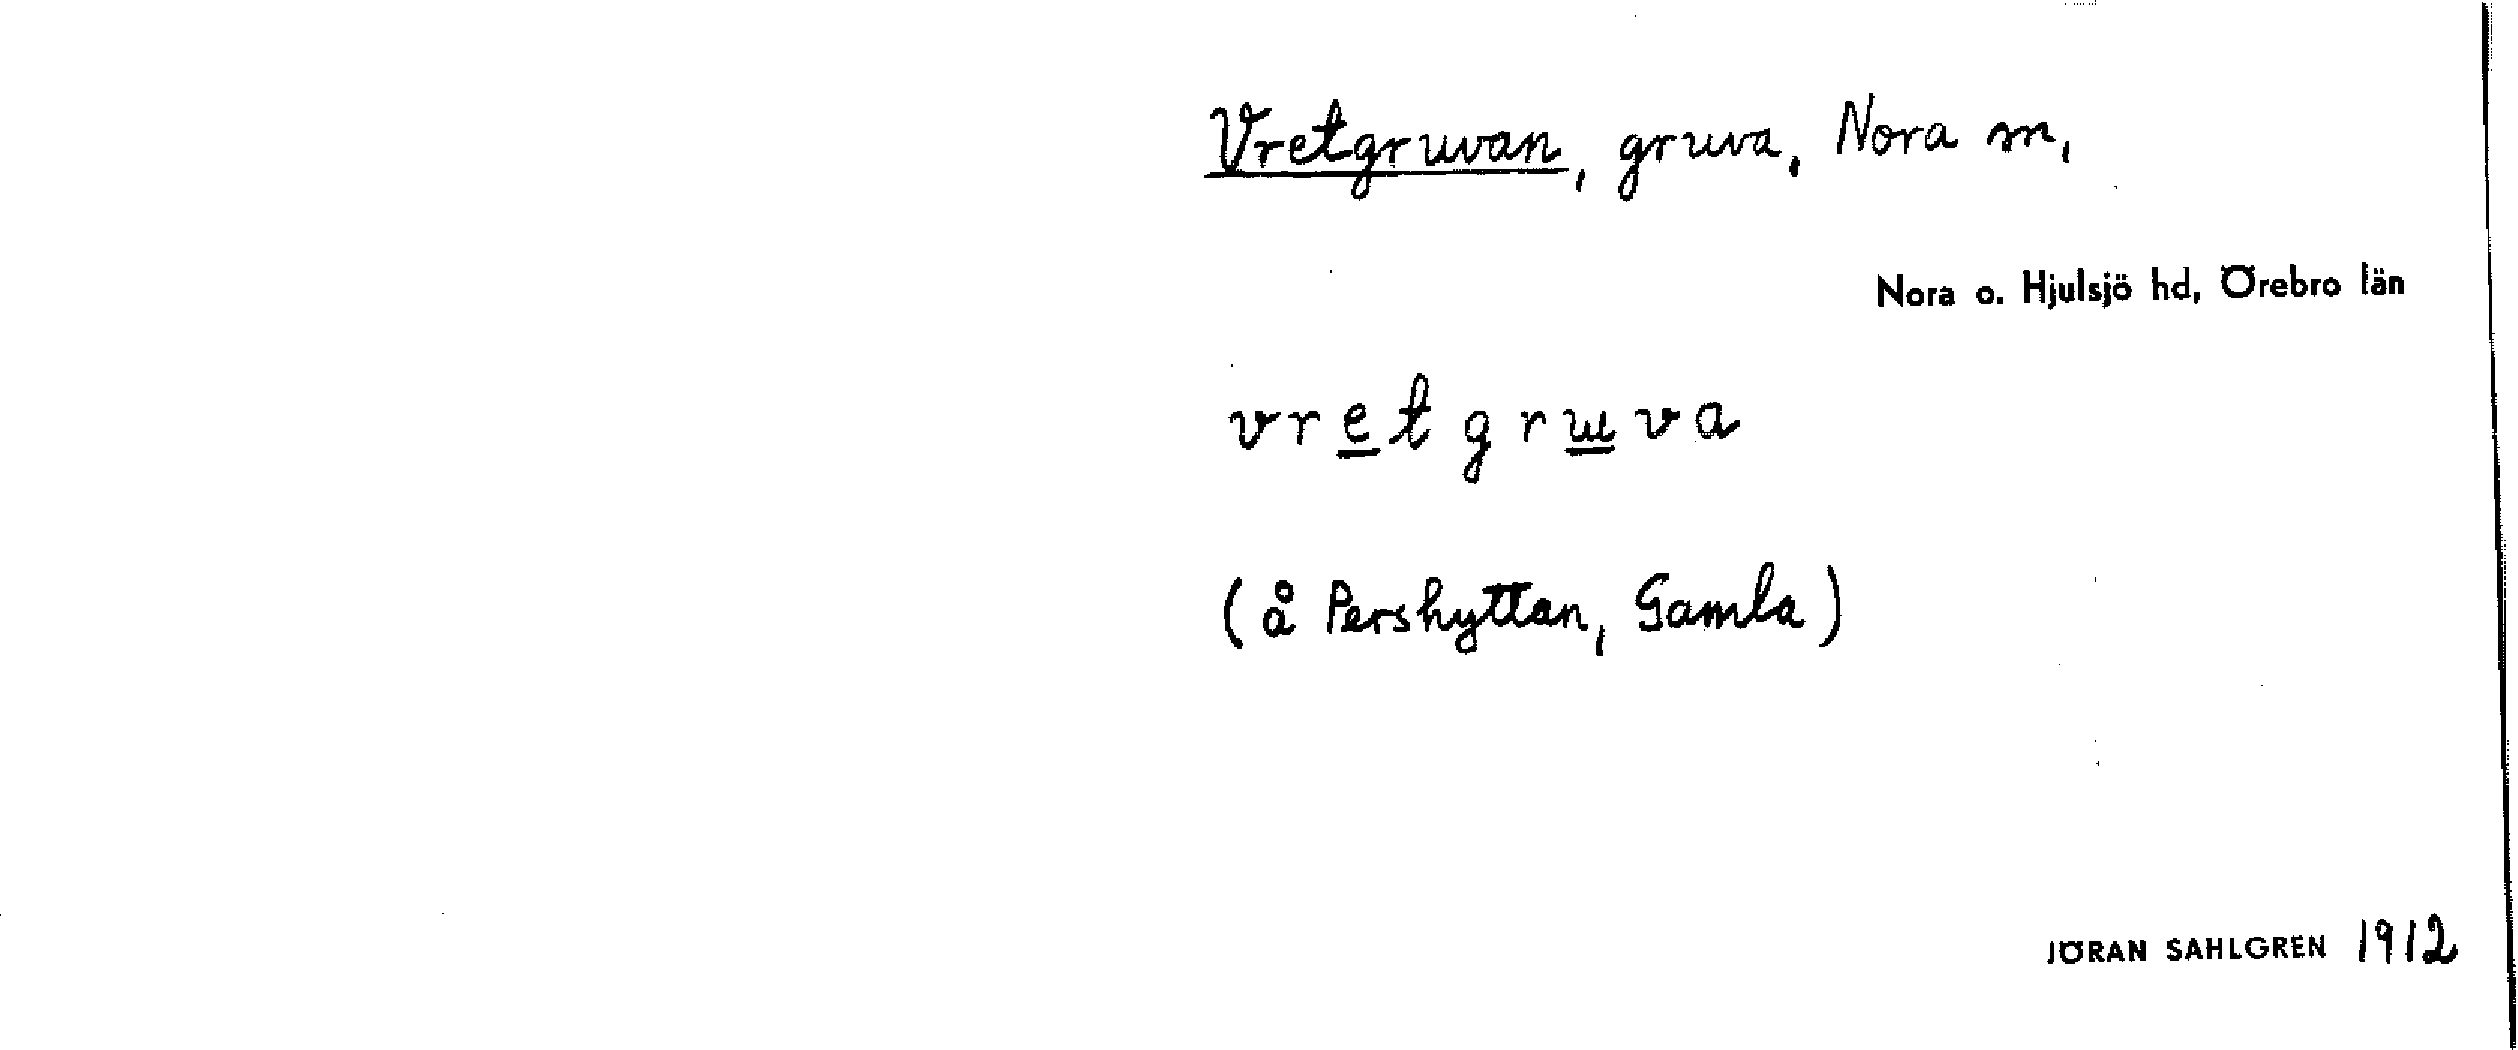 Vretgruvan, gruva, Nora sn,
Nora o. Hjulsjö hd, Örebro län
vretgruva
(å Pershyttan, Gamla)
JÖRAN SAHLGREN 1912